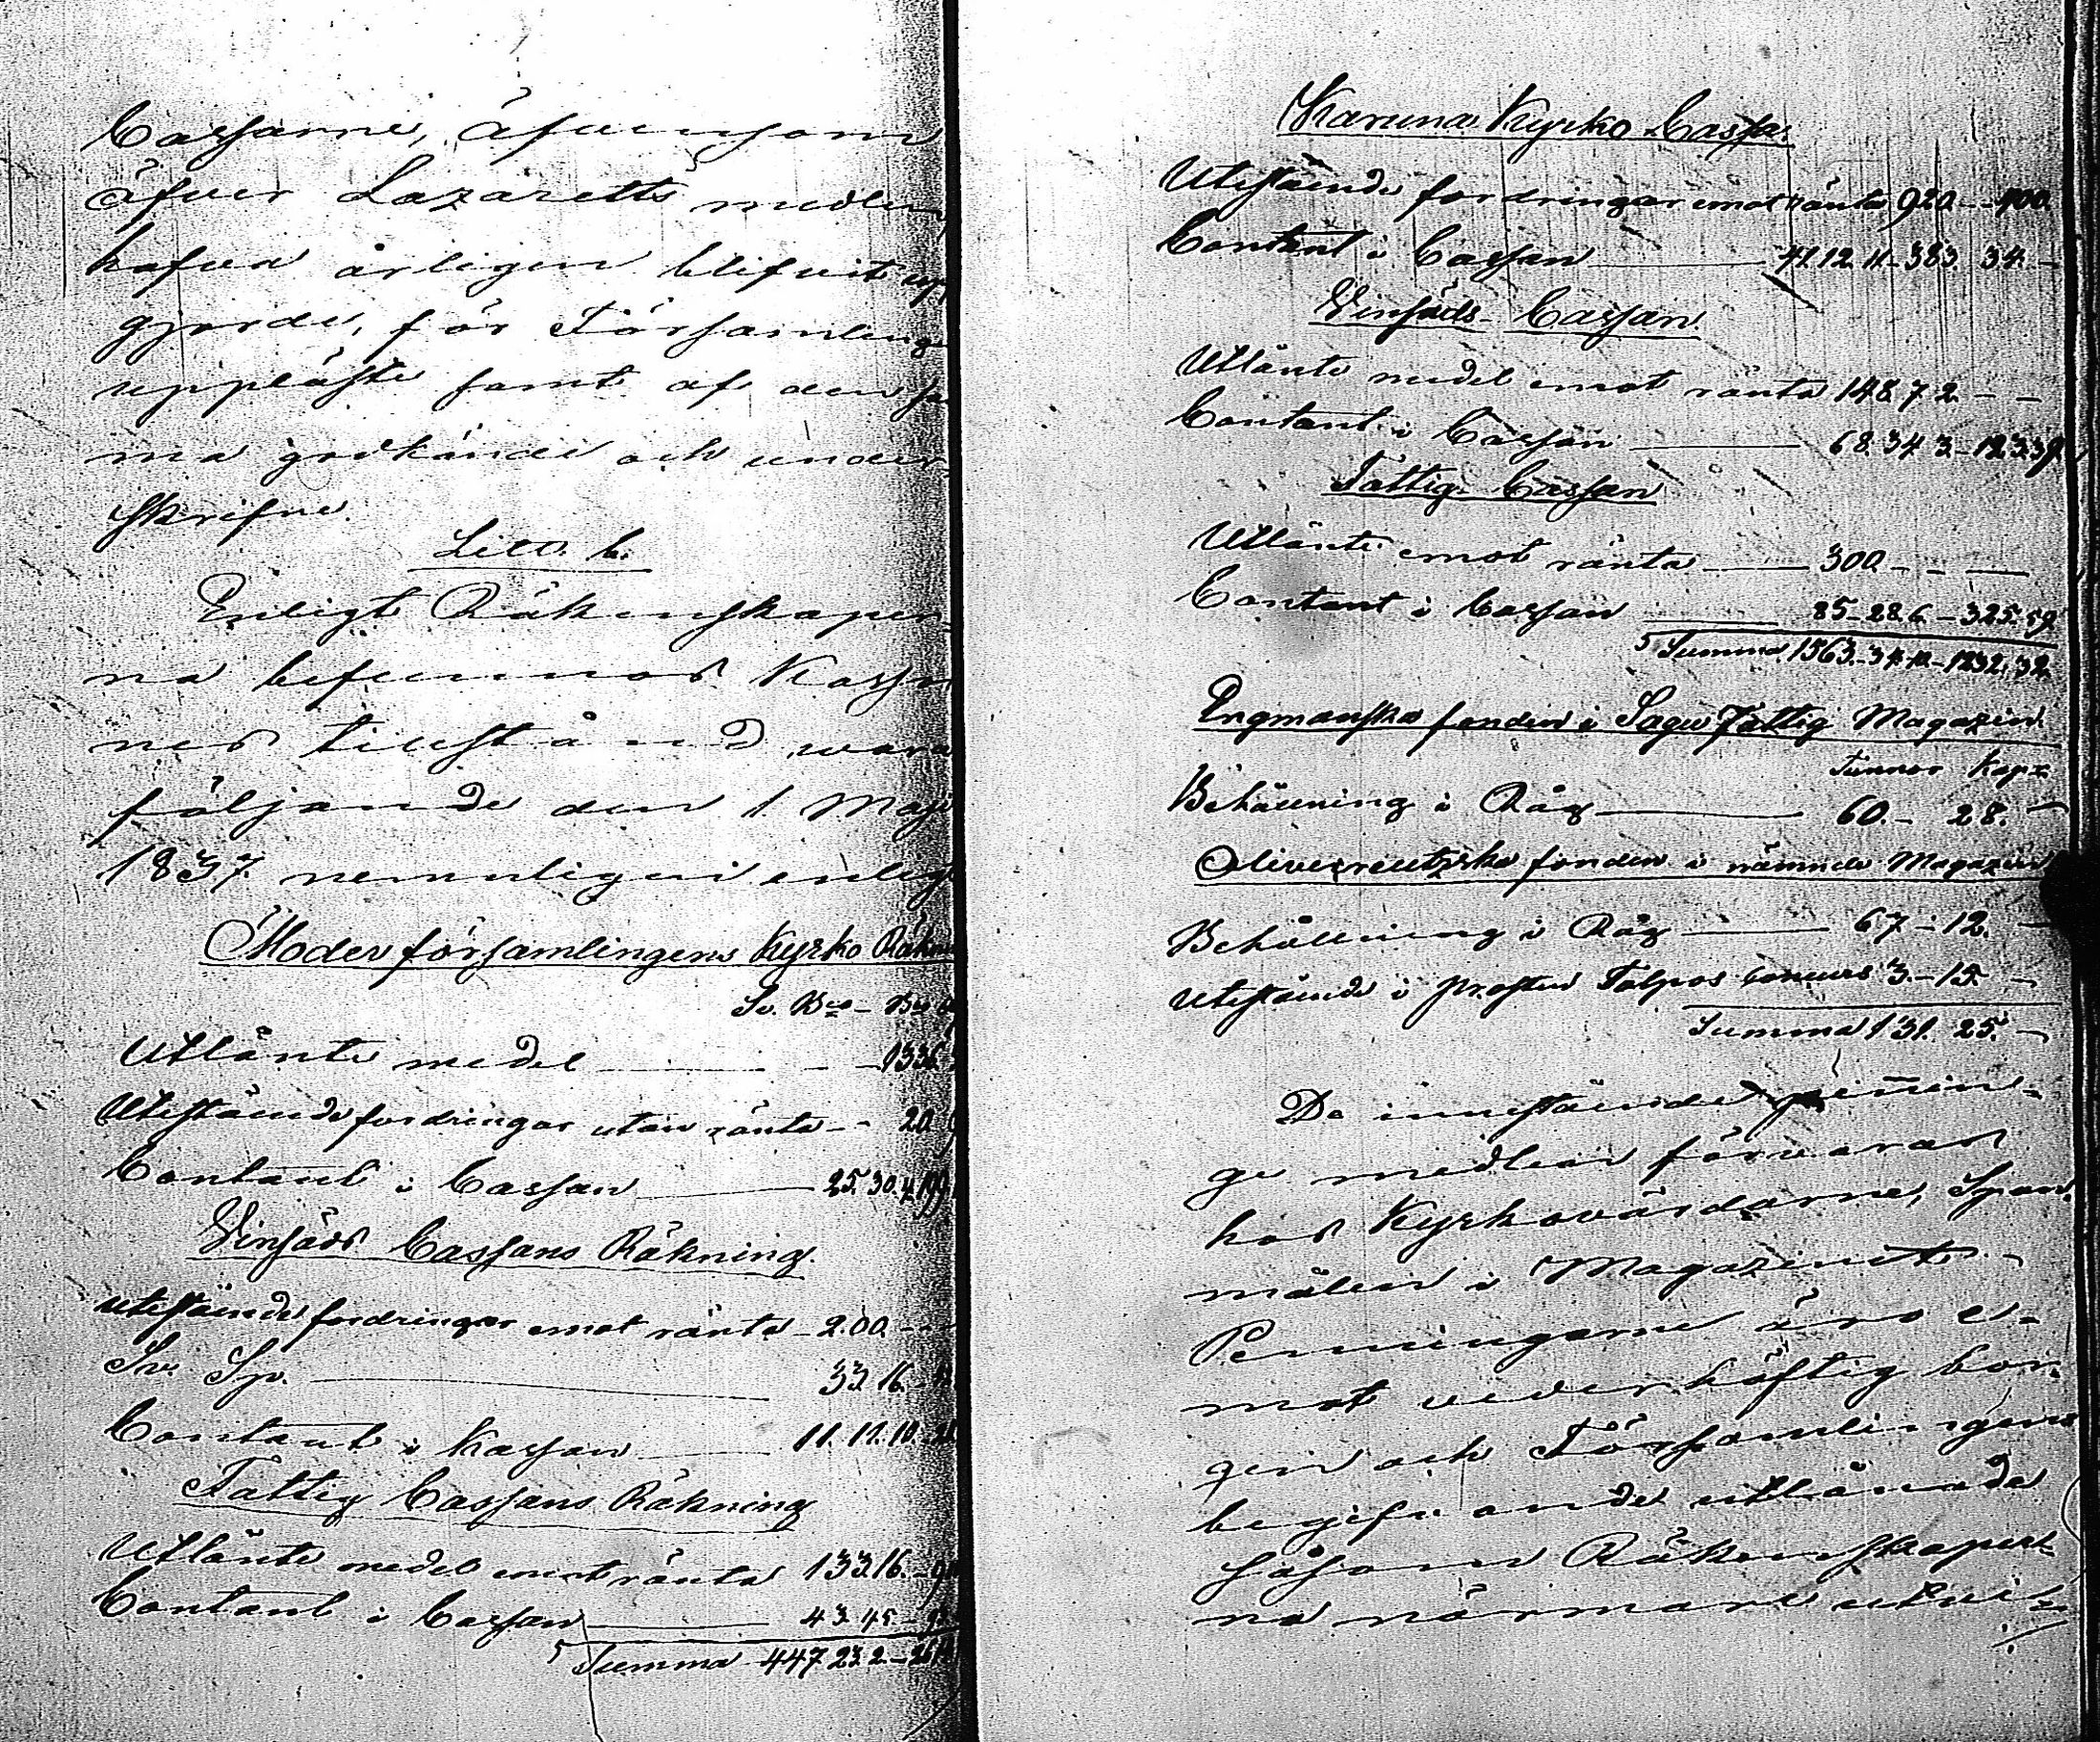 Cassarne, äfvensom
öfver Lazaretts medlen
hafva årligen blifvit up
gjorde, för Församling
uppläste samt af den sa
ma godkände och under
skrifne.
Litt. C.
Enligt Räkenskaper
na befunnos Kassor
nes tillstånd vara
följande den 1. Maji
1837. nemnligen enligt
Moderförsamlingens Kyrko Räkn
Sv. Bco - Bco
Utlånte medel - - 1336.
Utestående fordringar utan ränta - - 20
Contant i Cassan 25. 30. 4.
Vinsäds Cassans Räkning.
Utestående fordringar emot ränta - 200. -
Sv. Sp. 33. 16. -
Contant i Kassan 11. 11. 10.
Fattig Cassans Räkning
Utlånte medel emot ränta 133. 16. -
Contant i Cassan 43. 45 -
Summa 447 23. 2. -
Karuna Kyrko Cassa.
Utestående fordringar emot ränta 920. - - 400.
Contant i Cassan 41. 12. 11. - 383. 34. -
Vinsäds - Cassan.
Utlånte medel emot ränta 148. 7. 2. - -
Contant i Cassan 68. 34. 3. - 123. 39.
Fattig - Cassan
Utlånte emot ränta 300. - - -
Contant i Cassan 85 - 28. 6. - 325. 59
Summa 1563. - 34. 10. - 1232. 32.
Engmanska fonden i Sagu Fattig Magazin.
Tunnor Kapr
Behållning i Råg 60. - 28. -
Olivecreutzska fonden i nämnde Magazin
Behållning i Råg 67 - 12. -
Utestående i Prosten Talpos concurs 3. - 15. -
Summa 131. 25. -
De innestående pennin-
ge medlen förvaras
hos Kyrkovärdarne, Span-
målen i Magazinet -
Penningarne äro e-
mot vederhäftig bor-
gen och Församlingens
begifvande utlånade
såsom Räkenskaper-
na närmare utvi-